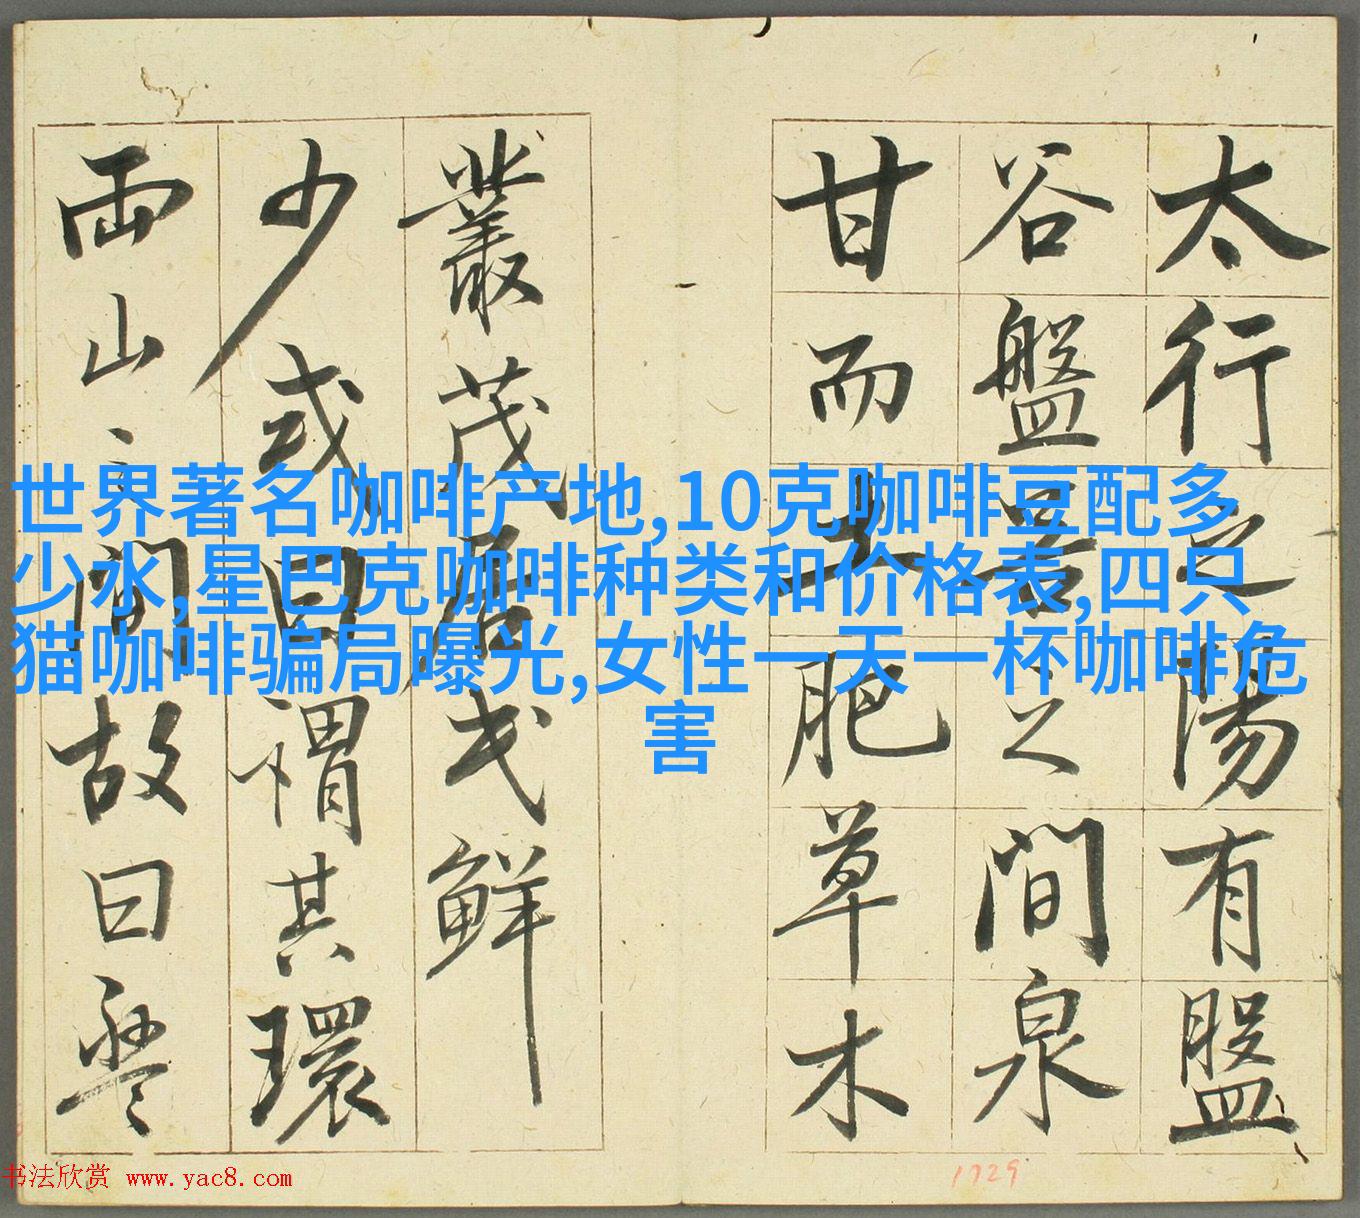 世界著名咖啡产地,10克咖啡豆配多
少水,星巴克咖啡种类和价格表,四只
猫咖啡骗局曝光,女性一天一杯咖啡危
害
太行之陽有盤
谷盤谷之間泉
甘而土肥草木
叢茂居民鮮
少或曰謂其環
兩山之間故曰盤
书法欣赏 www.yac8.com
1729